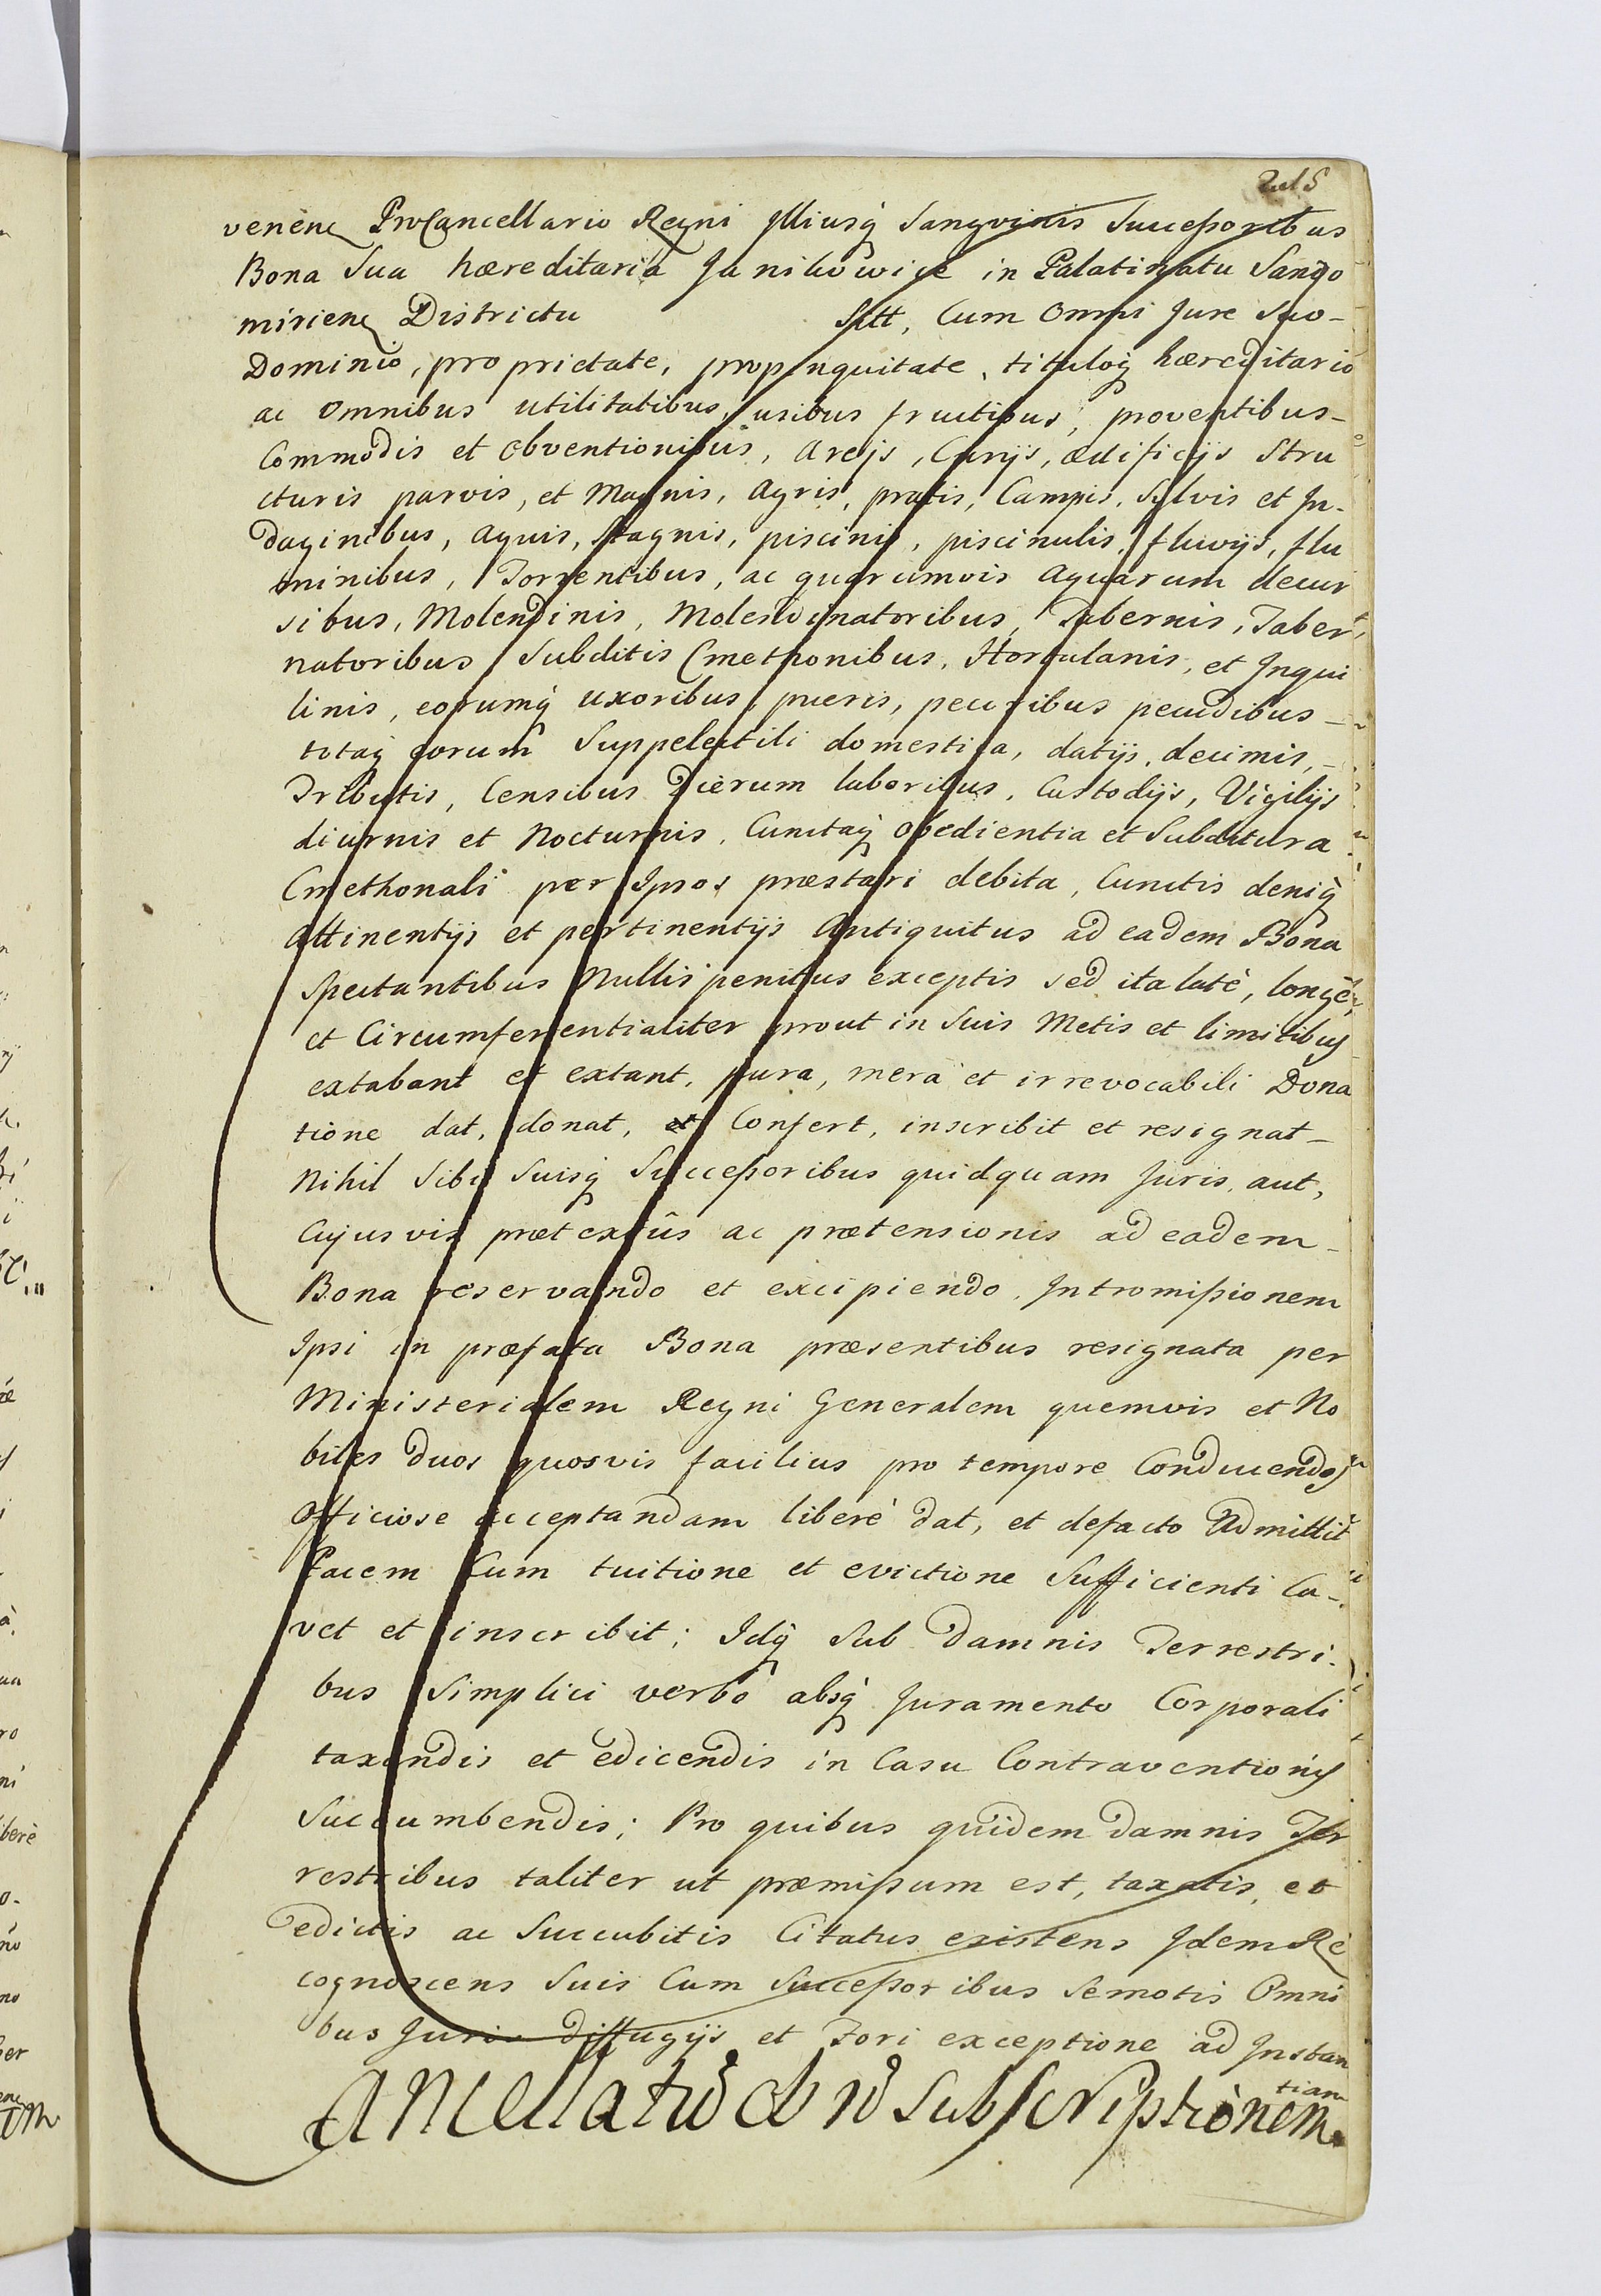 venènę ProCancellario Regni Illiusq́ Sangvinis Succeßoribus
Bona Sua hæreditaria Janikowice in Palatinatu Sando
mirienę Districtu Sitt, Cum Omni Jure Suo-
Dominio, proprietate, propinquitate, tituloq́ hæreditario
ac omnibus utilitatibus, usibus fructibus, proventibus-
Commodis et obventionibus, areijs, Curijs, ædificijs Stru
cturis parvis, et Magnis, Agris, pratis, Campis, Sylvis et In-
daginibus, aquis, Stagnis, piscinis, piscinulis, fluvijs, flu
minibus, Torrentibus, ac quarumvis Aquarum decur
sibus, Molendinis, Molendinatoribus, Tabernis, Taber
natoribus Subditis Cmethonibus, Hortulanis, et Inqui
linis, eorumq́ uxoribus, pueris, pecoribus pecudibus-
totaq́ eorum Suppelectili domestica, datijs, decimis,-
Tributis, Censibus Dierum laboribus, Custodijs, Vigilijs
diurnis et Nocturnis, Cunctaq́ obedientia et Subditura
Cmethonali per Ipsos præstari debita, Cunctis deniq́
Attinentijs et pertinentijs Antiquitus ad eadem Bona
Spectantibus Nullis penitus exceptis sed ita latè, longè,
et Circumferentialiter prout in Suis Metis et limitibus
extabant et extant, pura, mera et irrevocabili Dona
tione dat, donat, et Confert, inscribit et resignat-
Nihil Sibi Suisq́ Succeßoribus quidquam Juris, aut,
Cujusvis prætextûs ac prætensionis ad eadem-
Bona reservando et excipiendo. Intromißionem
Ipsi in præfata Bona præsentibus resignata per
Ministerialem Regni Generalem quemvis et No
biles duos quosvis facilius pro tempore Conducendos
Officiose acceptandam liberè dat, et defacto Admittit
Pacem Cum tuitione et evictione Sufficienti Ca-
vet et inscribit; Idq́ Sub damnis Terrestri-
bus Simplici verbo absq́ Juramento Corporali
taxandis et edicendis in Casu Contraventionis
Succumbendis; Pro quibus quidem damnis Ter
restribus taliter ut præmißum est, taxatis, et
edictis ac Succubitis Citatus existens Idem Re
cognoscens Suis Cum Succeßoribus Semotis Omni
bus Juris diffugijs et Fori exceptione ad Instan
tiam
Cancellatũ ob nõ Subscriptiònem.